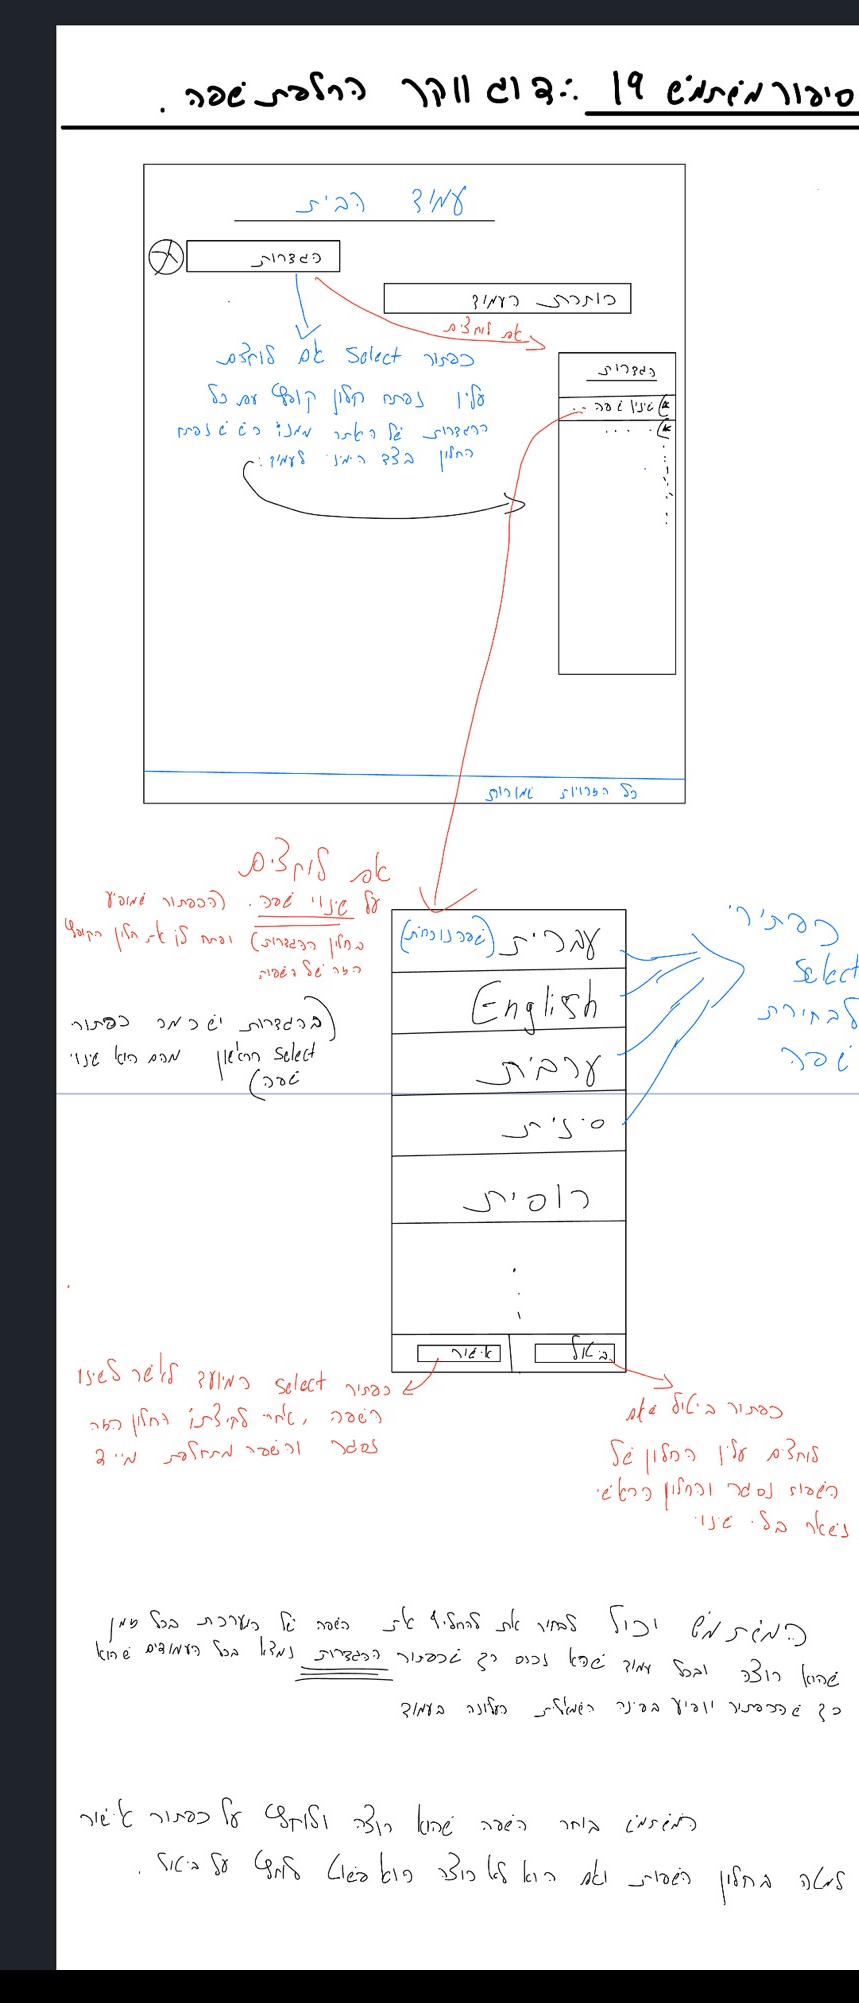 סיפור משתמש 19 : דוג ווקר החלפת שפה .
עמוד הבית
הגדרות
כותרת העמוד
אם לוחצים
הגדרות
א) שינוי שפה ...
א) ....
כפתור select אם לוחצים
עליו נפתח חלון קופץ עם כל
ההגדרות של האתר
החלון בצד הימני לעמוד :
כל הזכויות שמורות
אם לוחצים
על שינוי שפה . (הכפתור שמופיע
בחלון ההגדרות) נפתח לו את חלון הקופץ
הזה של השפות
(בהגדרות יש כמה כפתורי
select הראשון מהם הוא שינוי
שפה)
עברית (שפה נוכחית)
English
ערבית
סינית
רוסית
כפתורי
select
לבחירת
שפה
ביטול
אישור
כפתור select המיועד לאשר לשינוי
השפה , אחרי לחיצתו החלון הזה
נסגר והשפה מתחלפת מייד
כפתור ביטול שאם
לוחצים עליו החלון של
השפות נסגר והחלון הראשי
נשאר בלי שינוי
המשתמש יכול לבחור את להחליף את השפה של המערכת בכל זמן
שהוא רוצה ובכל עמוד שהוא נכנס כך שכפתור ההגדרות נמצא בכל העמודים שהוא
כך שהכפתור יופיע בפינה השמאלית העליונה בעמוד
המשתמש בוחר השפה שהוא רוצה ולוחץ על כפתור אישור
למטה בחלון השפות ואם הוא לא רוצה הוא פשוט לוחץ על ביטול .